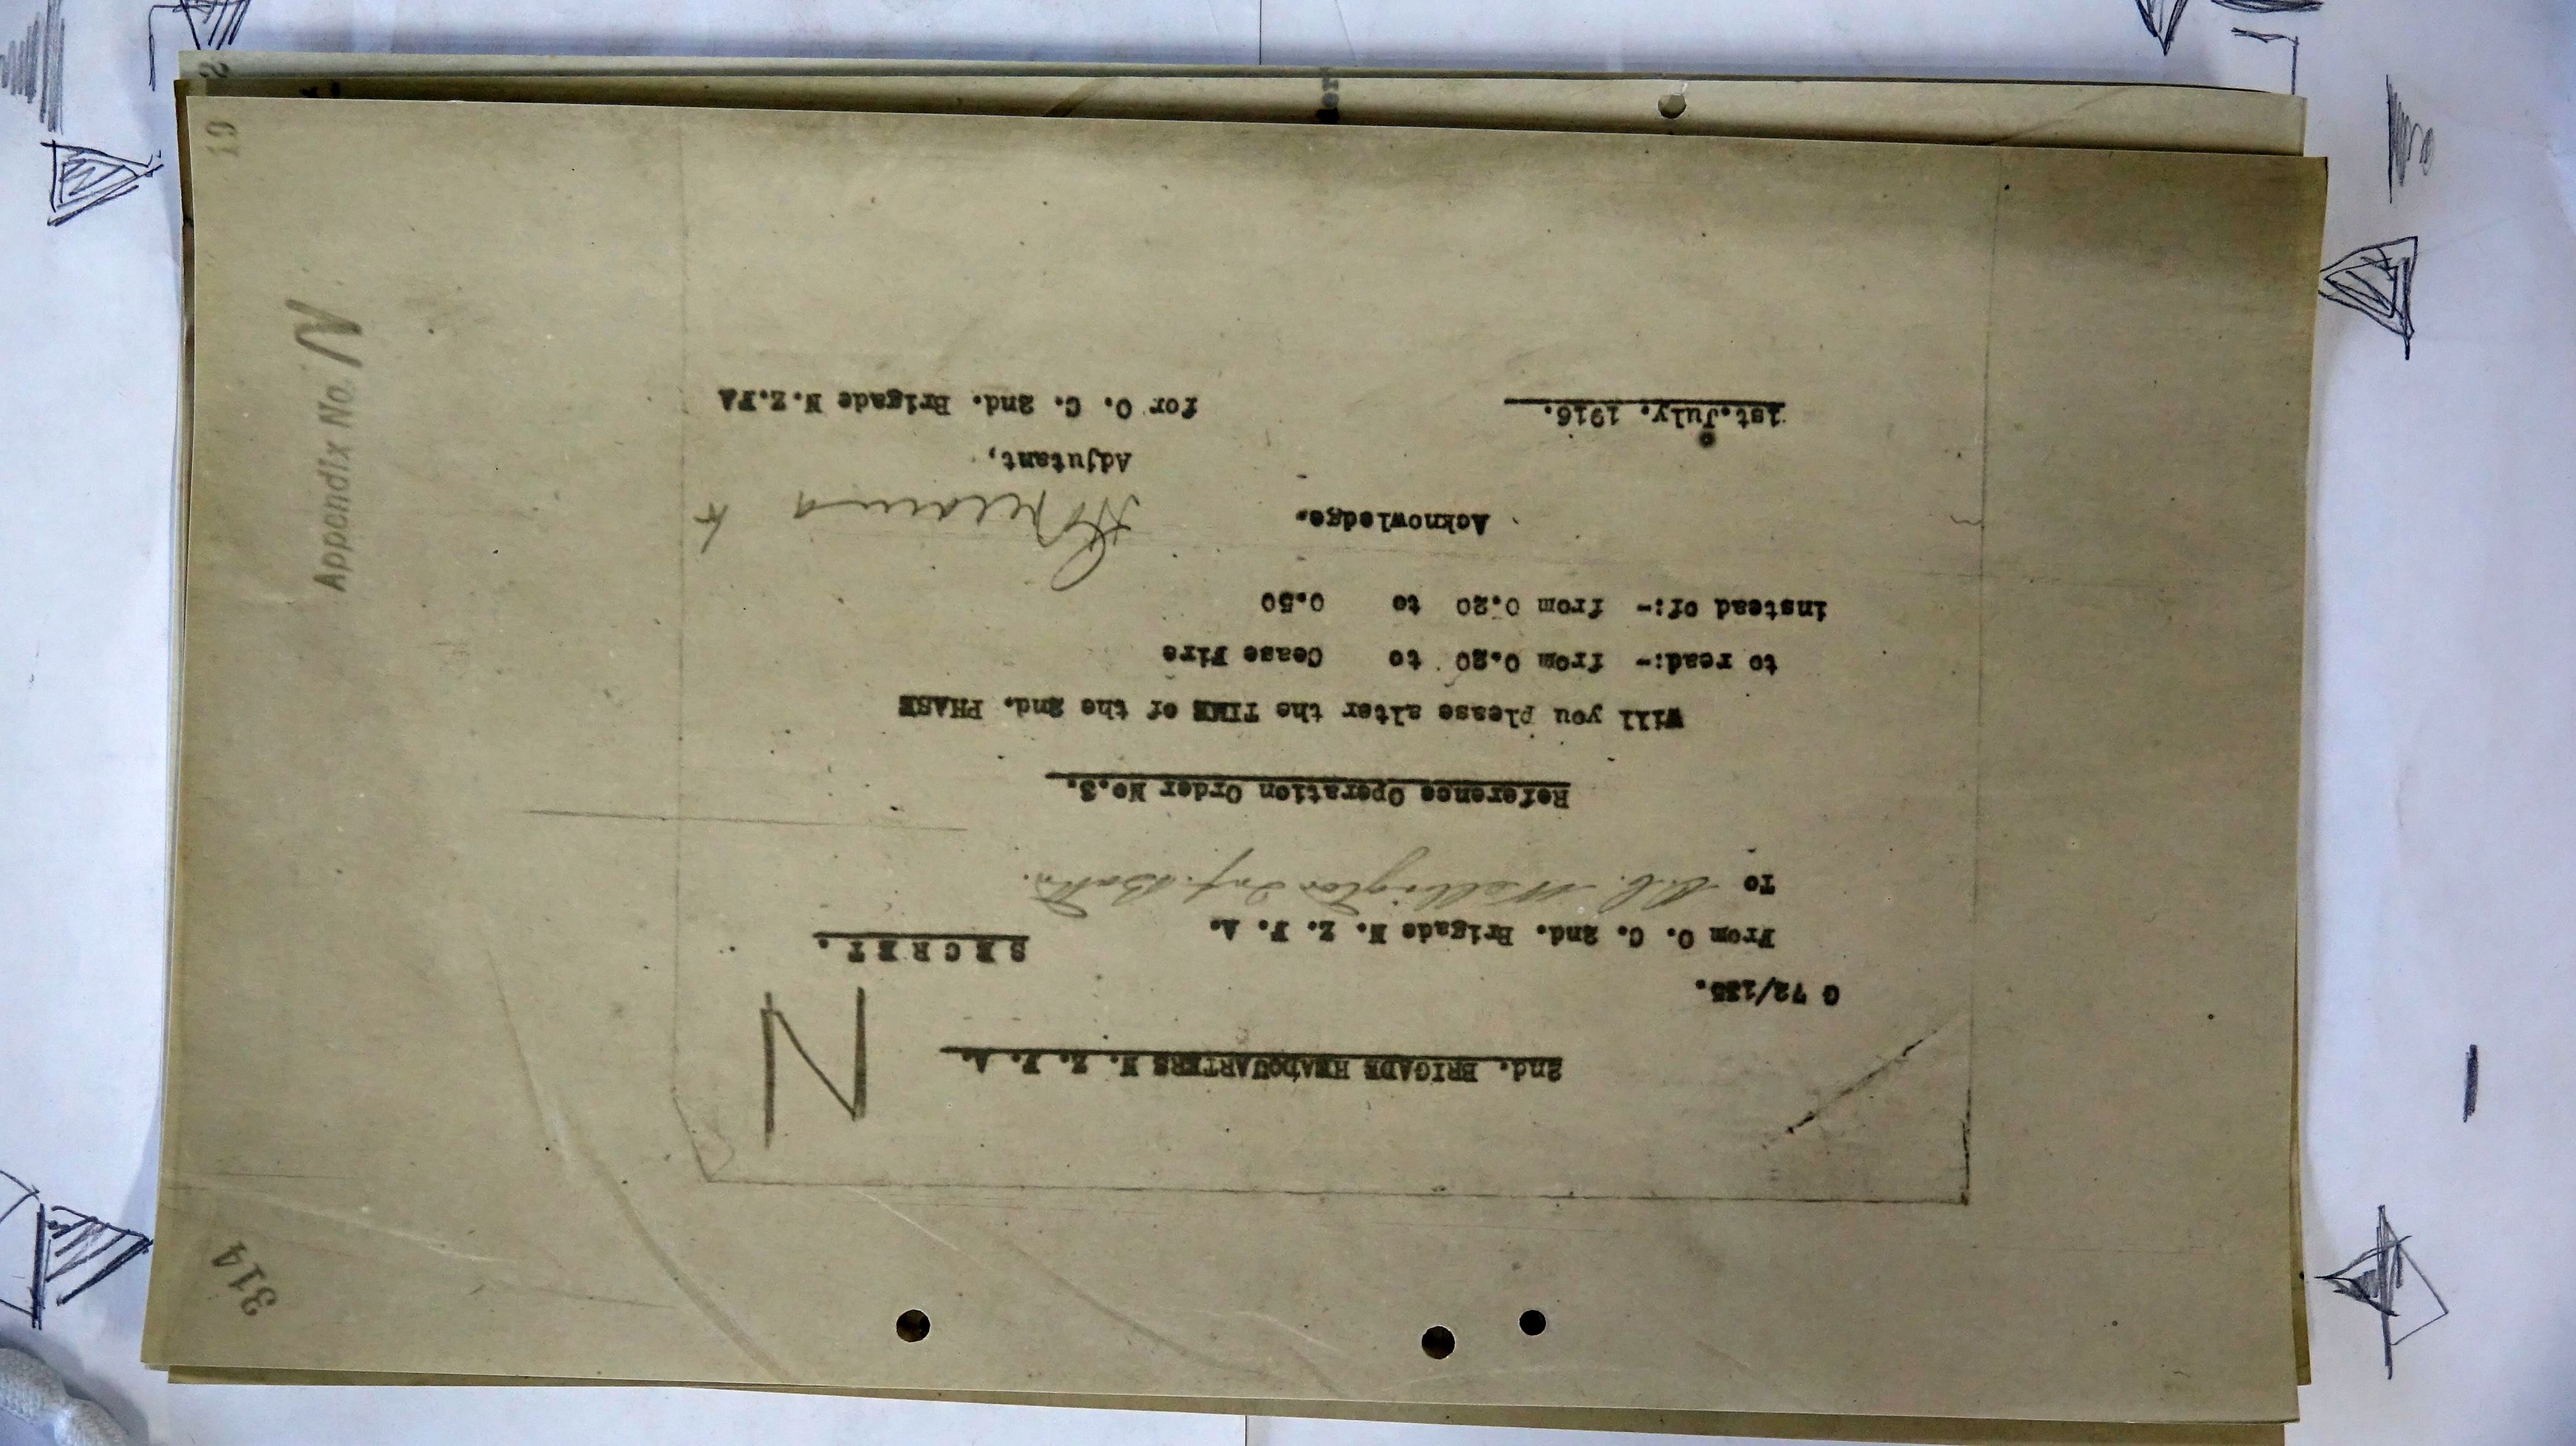 2nd. BRIGADE HEADQUARTERS N. Z. F. A.
N
G 72/135.
SECRET.
From O. C. 2nd. Brigade N. Z. F. A.
To O.C. Wellington Inf. Batt.
Reference Operation Order No.3.
Will you please alter the TIME of the 2nd. PHASE
to read:- from 0.20 to Cease Fire
instead of:- from 0.20 to 0.50
Acknowledge.
Adjutant,
1st.July. 1916.
for O. C. 2nd. Brigade N.Z.FA
Appendix No. N
314